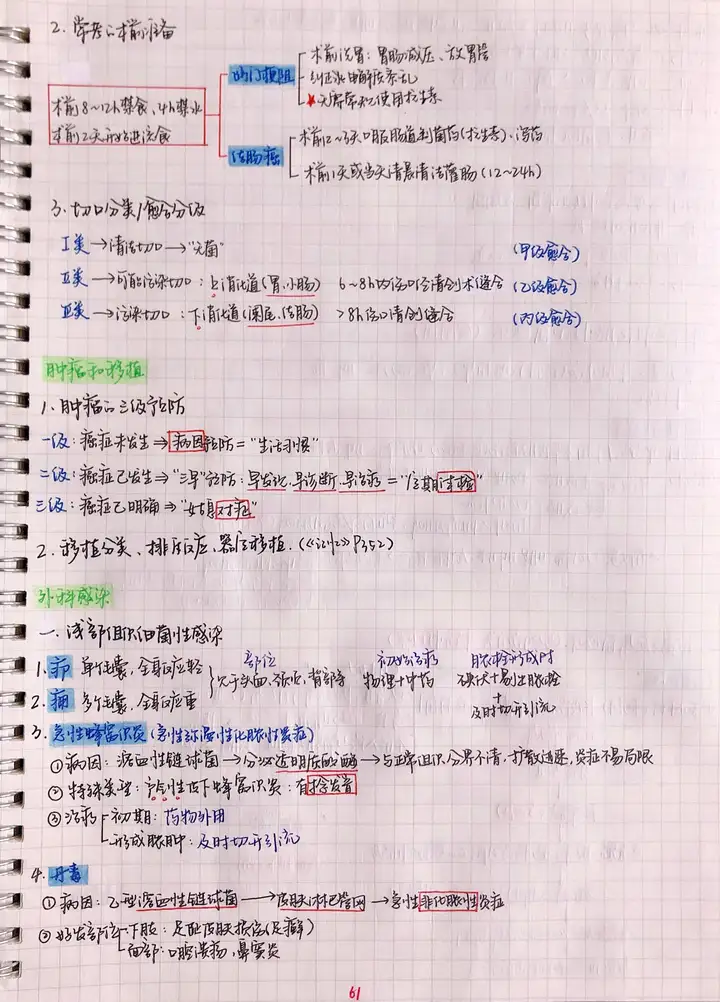 2. 常见的术前准备
术前8~12h禁食、4h禁水
术前2天开始进流食
幽门梗阻
术前洗胃：胃肠减压、放胃管
纠正水电解质紊乱
★无需常规使用抗生素
结肠癌
术前2~3天口服肠道制菌药(抗生素)、泻药
术前1天或当天清晨清洁灌肠(12~24h)
3. 切口分类/愈合分级
I类→清洁切口→"无菌" (甲级愈合)
II类→可能污染切口：上消化道(胃、小肠) 6~8h内伤口经清创术缝合 (乙级愈合)
III类→污染切口：下消化道(阑尾、结肠) >8h伤口清创缝合 (丙级愈合)
肿瘤和移植
1. 肿瘤的三级预防
一级：癌症未发生⇒病因预防="生活习惯"
二级：癌症已发生⇒"三早"预防：早发现、早诊断、早治疗="定期体检"
三级：癌症已明确⇒"姑息对症"
2. 移植分类、排斥反应、器官移植.(《》P352)
外科感染
一、浅部组织细菌性感染
部位 初始治疗 脓栓形成时
1. 疖 单个毛囊，全身反应轻
2. 痈 多个毛囊，全身反应重
欠于头面、颈项、背部等 物理+中药 碘伏+剔出脓栓
+
及时切开引流
3. 急性蜂窝织炎(急性弥漫性化脓性炎症)
①病因：溶血性链球菌→分泌透明质酸酶→与正常组织分界不清，扩散迅速，炎症不易局限
②特殊类型：产气性皮下蜂窝织炎：有捻发音
③治疗 初期：药物外用
形成脓肿：及时切开引流
4. 丹毒
①病因：乙型溶血性链球菌→皮肤淋巴管网→急性非化脓性炎症
②好发部位 下肢：足趾皮肤损伤(足癣)
面部：口腔溃疡、鼻窦炎
61